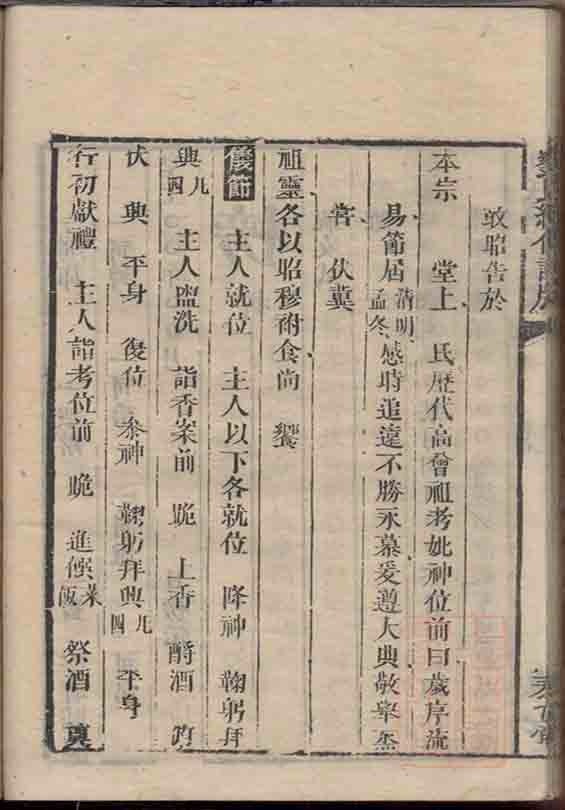 敢昭告於
本宗 堂上 氏歷代高曾祖考妣神位前曰歲序流
易節屆清明、孟冬、感時追遠不勝永慕爰遵大典敬舉
嘗伏冀
祖靈各以昭穆祔食尚 饗
儀節 主人就位 主人以下各就位 降神 鞠躬拜
興凡四 主人盥洗 詣香案前 跪 上香 酹酒
伏 興 平身 復位 參神 鞠躬拜興凡四 平身
行初獻禮 主人詣考位前 跪 進饌菜飯 祭酒 奠